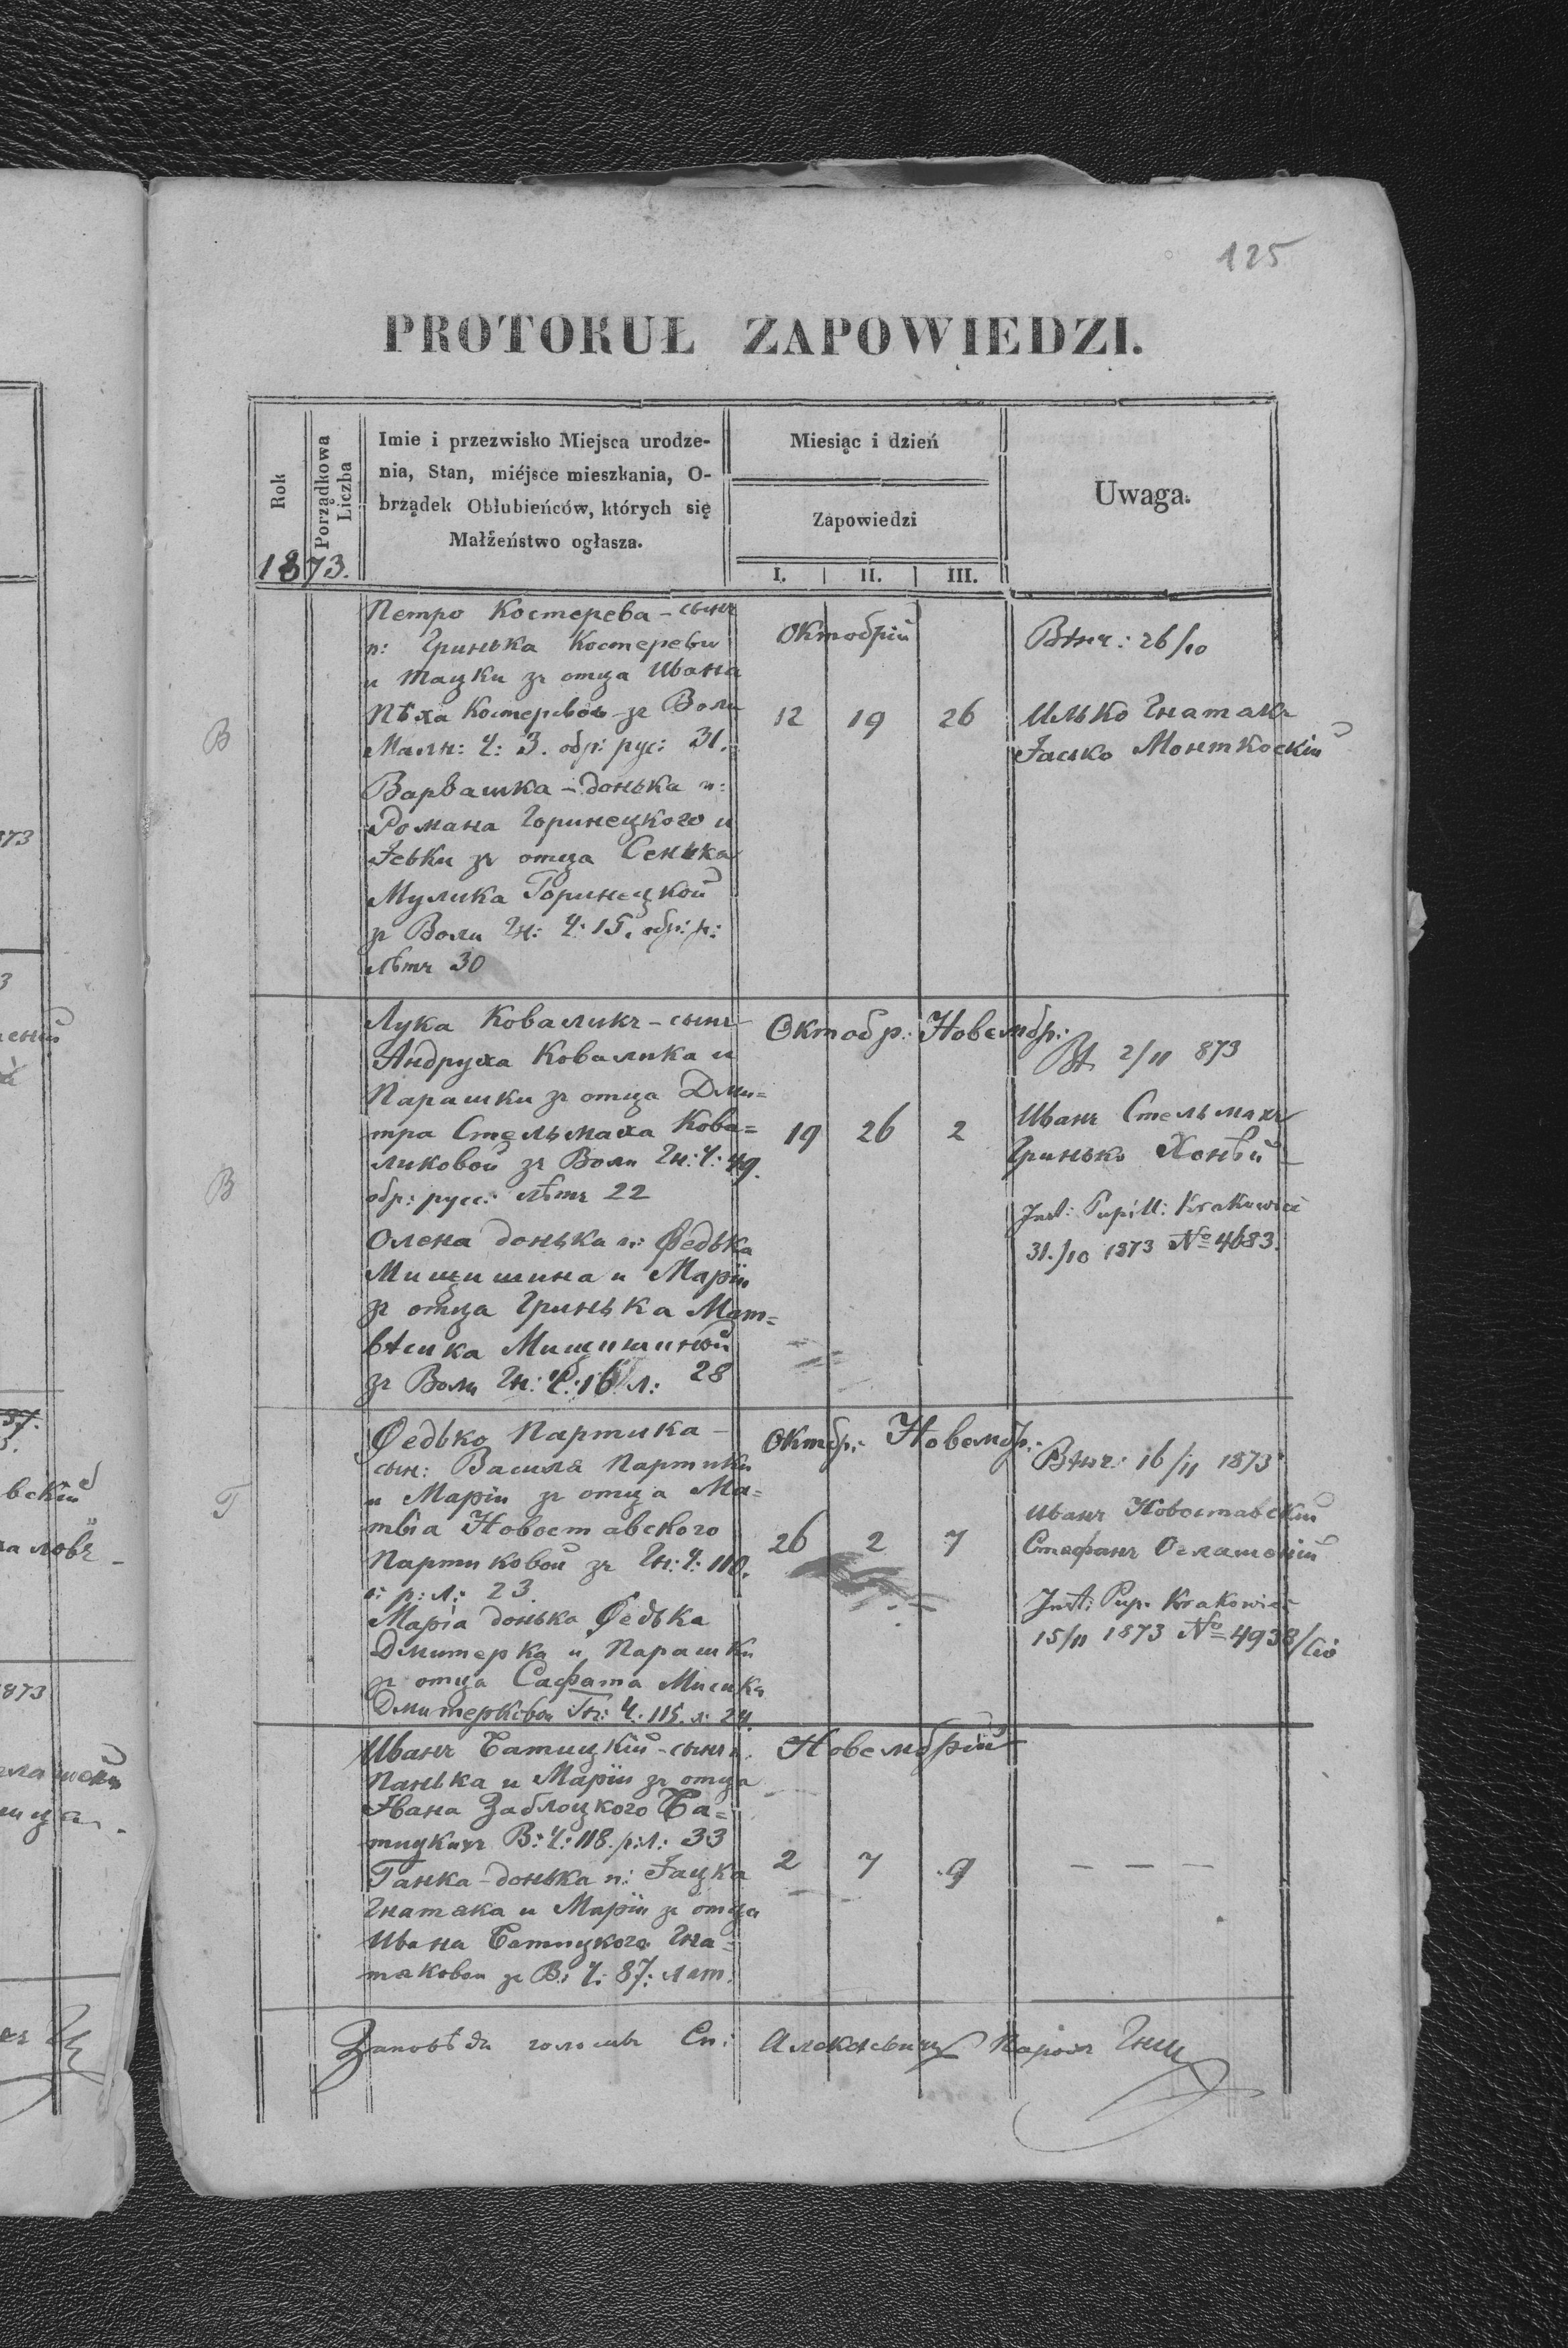 125
PROTOKUŁ ZAPOWIEDZI.
Rok
Porządkowa Liczba
Imie i przezwisko Miejsca urodze-
nia, Stan, miéjsce mieszkania, O-
brządek Obłubieńców, których się
Małżeństwo ogłasza.
Miesiąc i dzień
Zapowiedzi
I. II. III.
Uwaga.
1873.
В
Петро Костерева – сынъ
п: Гринька Костеревы
и Тацки зъ отца Ивана
Пѣха Костеревов зъ Воли
Малн: Ч: 3. обр: рус: 31.
Варвашка – донька п:
Романа Горинецкого и
Јевки зъ отца Сенька
Мулика Горинецкой
зъ Воли Гн: Ч: 15. обр: р:
лѣтъ 30
Октобрій
12 19 26
Вѣнч: 26/10
Илько Гнатакъ
Јасько Монткоскій
В
Лука Коваликъ – сынъ
Андруха Ковалика и
Парашки зъ отца Дми=
тра Стельмаха Кова=
ликовой зъ Воли Гн: Ч: 49.
обр: русс: лѣтъ 22
Олена донька п: Федька
Мищишина и Маріи
зъ отца Гринька Мат=
вѣика Мищишиной
зъ Воли Гн: Ч: 16 л: 28
Октобр: Новембр:
19 26 2
Вѣ 2/11 873
Иванъ Стельмахъ
Гринько Хонѣй
Inst: Pupill: Krakowiec
31./10 1873 No 4683.
Г
Федько Партика –
сын: Василя Партики
и Маріи зъ отца Ма=
твіа Новоставского
Партиковой зъ Гн: Ч: 110.
о: р: л: 23.
Маріа донька Федька
Дмитерка и Парашки
зъ отца Сафата Мисика
Дмитерковои Гн: Ч: 115. л: 24.
Октбр: Новембр:
26 2 7
Вѣнч: 16/11 1873
Иванъ Новоставскій
Стефанъ Оглашеній
Inst: Pup. Krakowiec
15/11 1873 No 4938/Civ
Иванъ Батицкій – сынъ п:
Панька и Маріи зъ отца
Јвана Заблоцкого Ба=
тицкихъ В: Ч: 118. р: л: 33
Ганка – донька п: Јацка
Гнатака и Маріи зъ отца
Ивана Батицкого Гна=
таковои зъ В: Ч: 87: лѣт.
Новембрій
2 7 9
— — —
Заповѣди голосивъ Сп: Алексевичъ Парохъ Гни